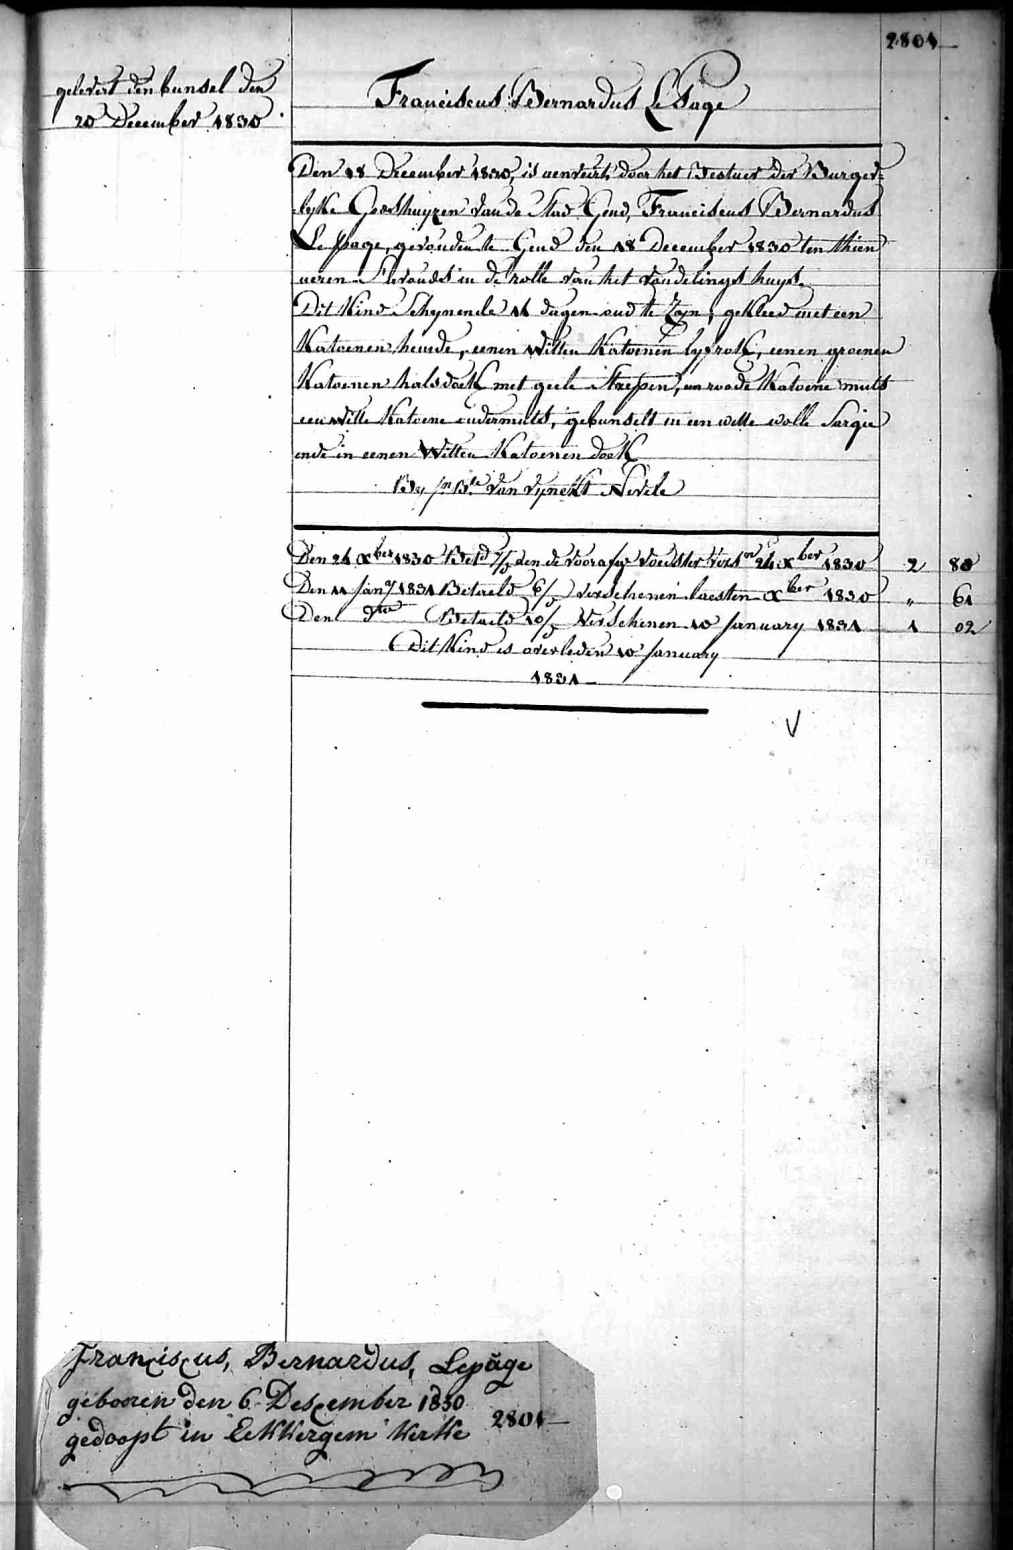 2804
gelevert den bunsel den
20 December 1830
Franciscus Bernardus Lepage
Den 18 December 1830, is aenveirt, door het Bestuer der Burger=
lyke Godshuyzen van de Stad Gend, Franciscus Bernardus
Lepage, gevonden te Gend den 18 December 1830 ten thien
ueren s'avonds in de rolle van het vondelingshuys.
Dit Kind Schynende 14 dagen oud te Zyn, gekleed met een
Katoenen hemde, eenen Witten Katoenen lyfrok, eenen groenen
Katoenen halsdoek met geele streepen, een roode Katoene muts
een Witte Katoene ondermuts, gebunselt in een witte wolle Sargie
ende in eenen Witten Katoenen doek
By Jn Bte van Vynckt Nevele
Den 24 Xber 1830 Betd 7/5 aen de voorafge voedster vers 24 Xber 1830 2 80
Den 11 Jany 1831 Betaeld 6/5 verschenen laesten Xber 1830 " 61
Den dto Betaeld 10/5 Verschenen 10 January 1831 1 02
Dit Kind is overleden 10 January
1831
Franciscus, Bernardus, Lepage
gebooren den 6 Desçember 1830
gedoopt in Eekkergem Kerke 2804